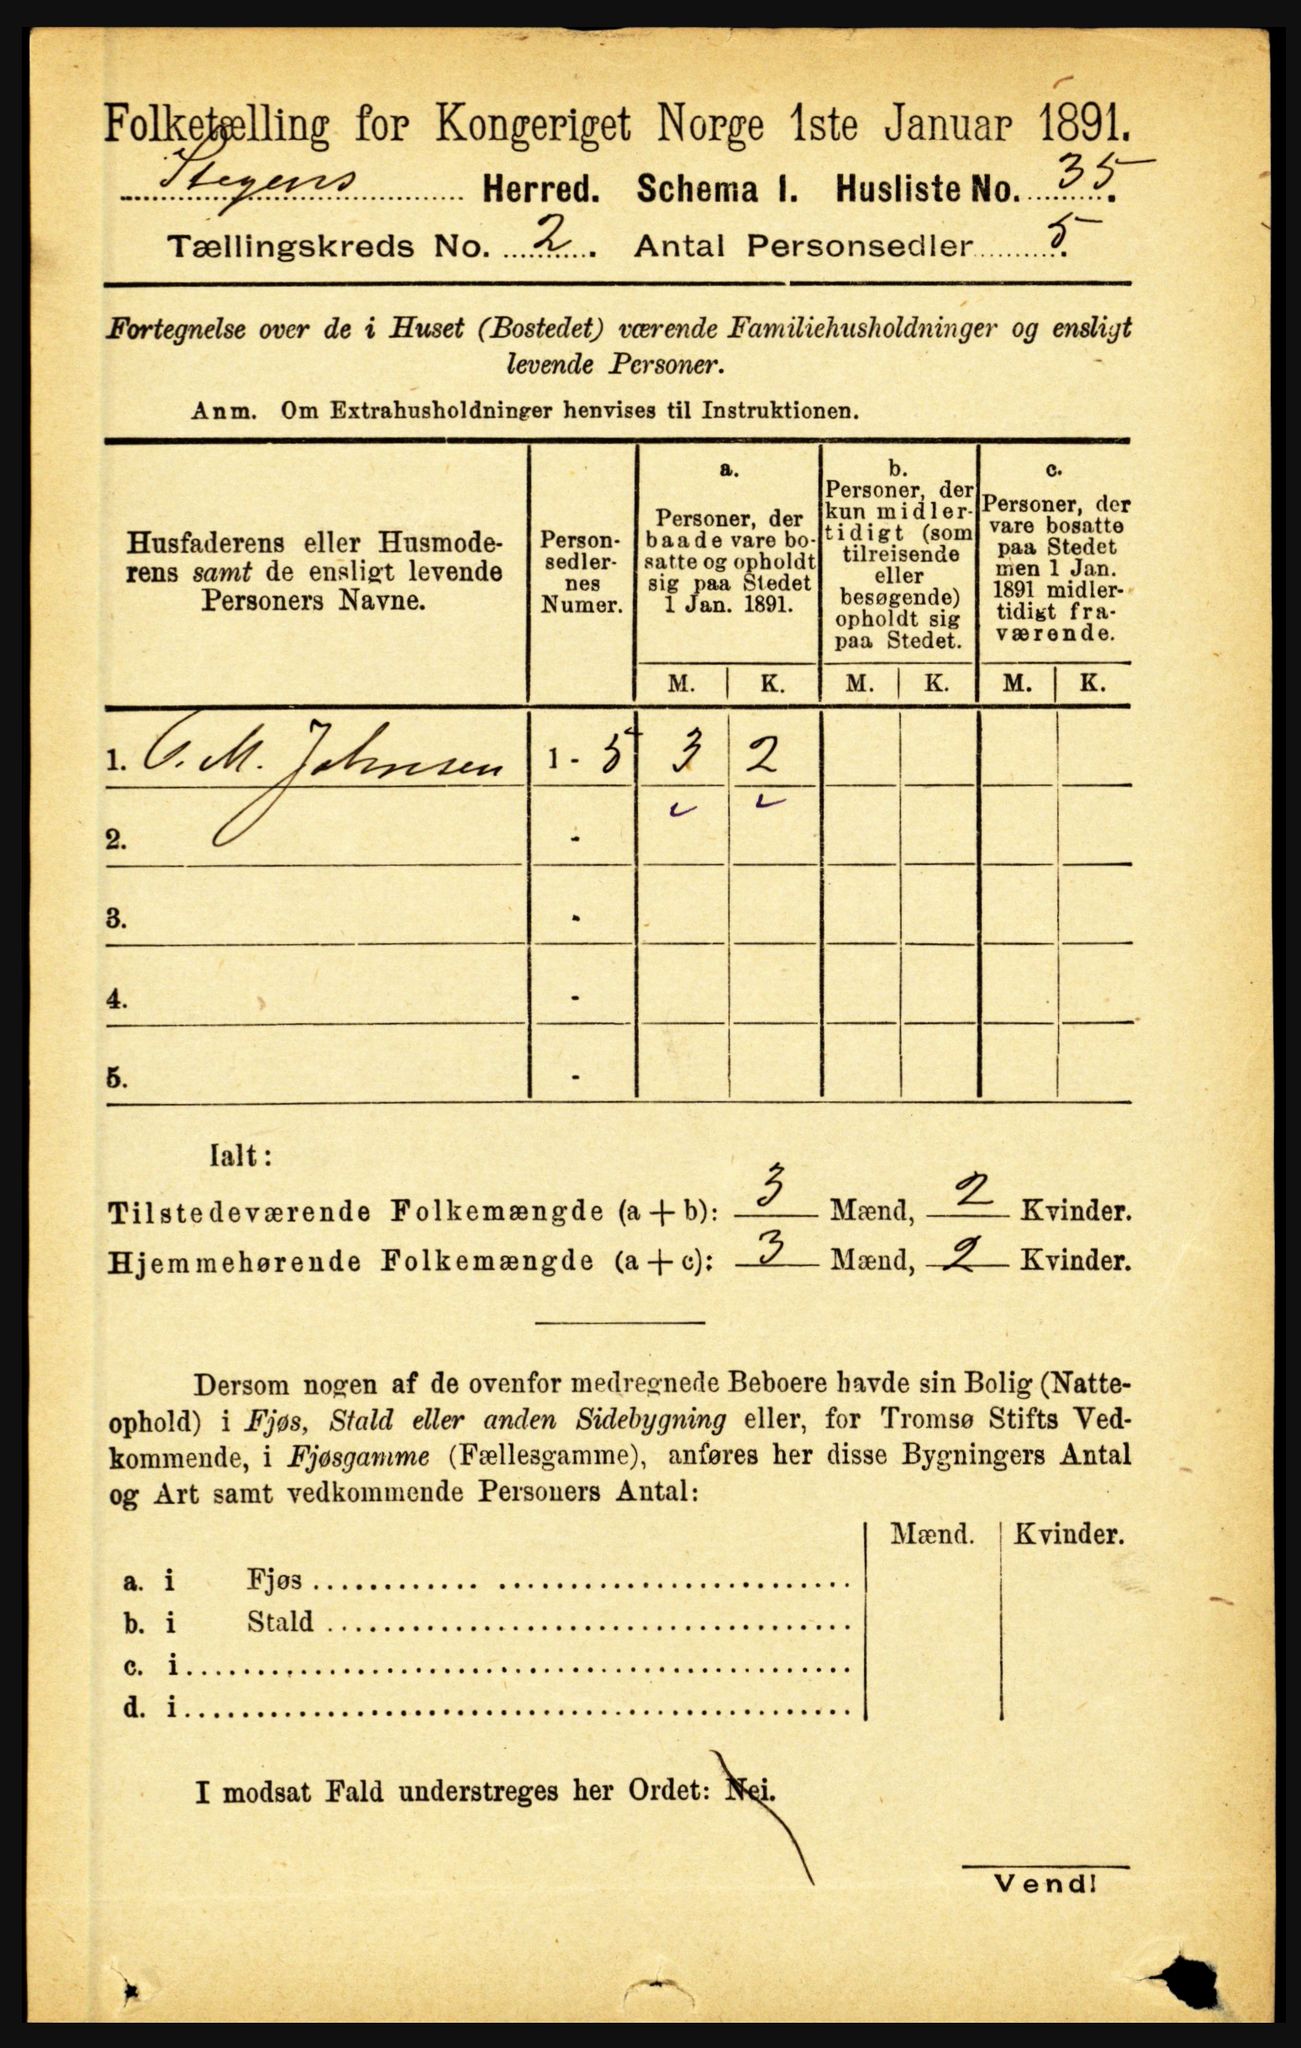 Folketælling for Kongeriget Norge 1ste Januar 1891.
Stegens Herred. Schema I. Husliste No. 35.
Tællingskreds No. 2. Antal Personsedler 5.
Fortegnelse over de i Huset (Bostedet) værende Familiehusholdninger og ensligt
levende Personer.
Anm. Om Extrahusholdninger henvises til Instruktionen.
Husfaderens eller Husmode-
rens samt de ensligt levende
Personers Navne.
Person-
sedler-
nes
Numer.
a.
Personer, der
baade vare bo-
satte og opholdt
sig paa Stedet
1 Jan. 1891.
b.
Personer, der
kun midler-
tidigt (som
tilreisende
eller
besøgende)
opholdt sig
paa Stedet.
c.
Personer, der
vare bosatte
paa Stedet
men 1 Jan.
1891 midler-
tidigt fra-
værende.
M. K. M. K. M. K.
1. O. M. Johnsen 1 - 5 3 2
2. -
3. -
4. -
5. -
Ialt:
Tilstedeværende Folkemængde (a + b): 3 Mænd, 2 Kvinder.
Hjemmehørende Folkemængde (a + c): 3 Mænd, 2 Kvinder.
Dersom nogen af de ovenfor medregnede Beboere havde sin Bolig (Natte-
ophold) i Fjøs, Stald eller anden Sidebygning eller, for Tromsø Stifts Ved-
kommende, i Fjøsgamme (Fællesgamme), anføres her disse Bygningers Antal
og Art samt vedkommende Personers Antal:
Mænd. Kvinder.
a. i Fjøs
b. i Stald
c. i
d. i
I modsat Fald understreges her Ordet: Nei.
Vend!